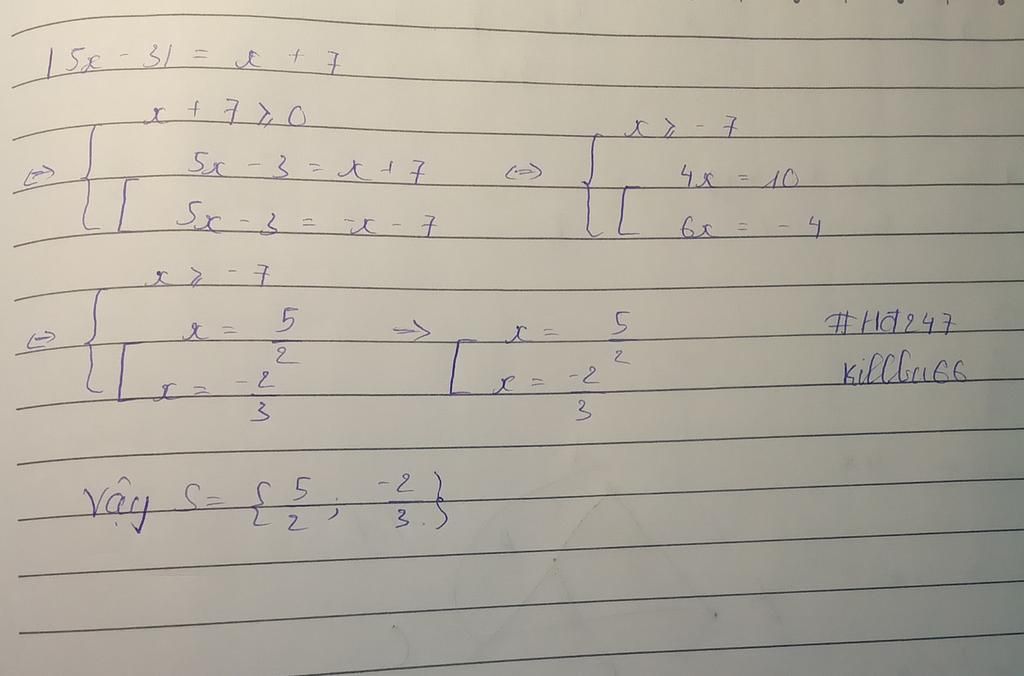 |5x - 3| = x + 7
⇔ { x + 7 ⩾ 0
[ 5x - 3 = x + 7
5x - 3 = -x - 7
⇔ { x ⩾ -7
[ 4x = 10
6x = -4
⇔ { x ⩾ -7
[ x = 5/2
x = -2/3
→ [ x = 5/2
x = -2/3
#Hd247
Vậy S = { 5/2 ; -2/3 }